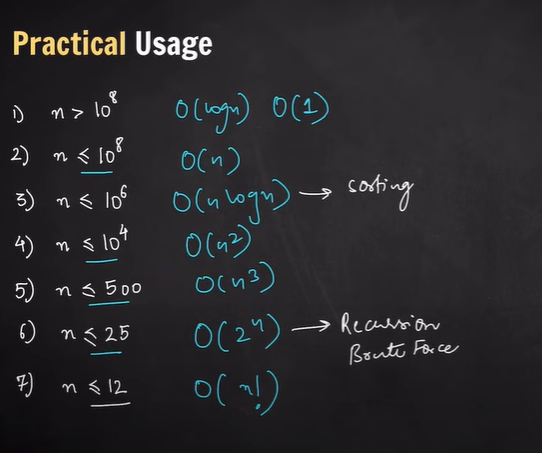 Practical Usage
1) n > 10⁸ O(logn) O(1)
2) n ≤ 10⁸ O(n)
3) n ≤ 10⁶ O(n logn) → sorting
4) n ≤ 10⁴ O(n²)
5) n ≤ 500 O(n³)
6) n ≤ 25 O(2ⁿ) → Recursion
Brute Force
7) n ≤ 12 O(n!)